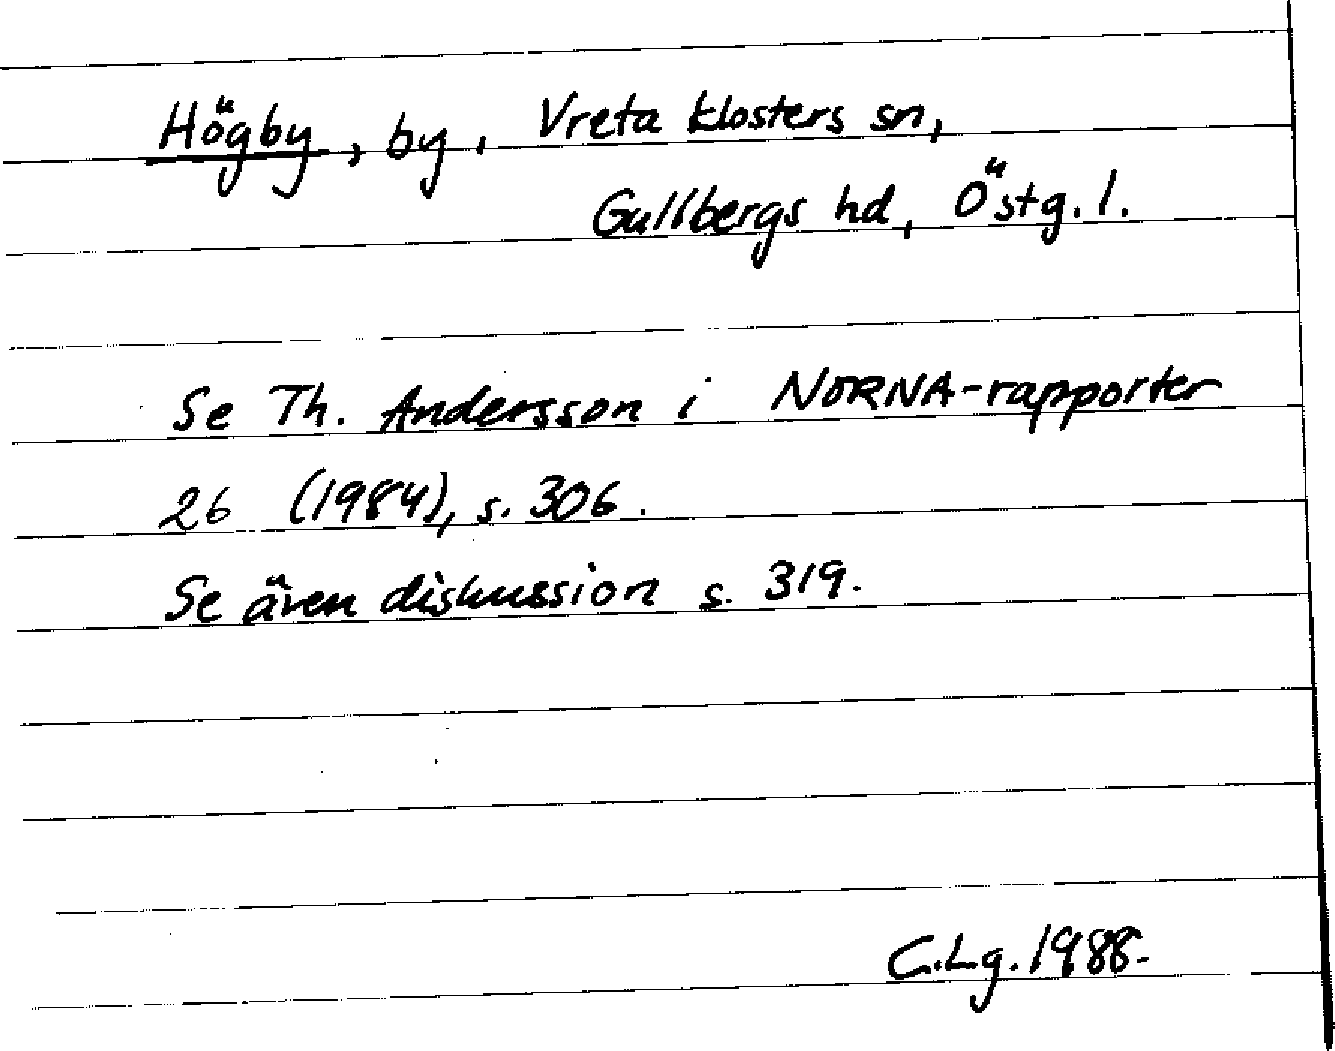 Högby, by, Vreta klosters sn,
Gullbergs hd, Östg. l.
Se Th. Andersson i NORNA-rapporter
26 (1984), s. 306.
Se även diskussion s. 319.
C.Lg. 1988.